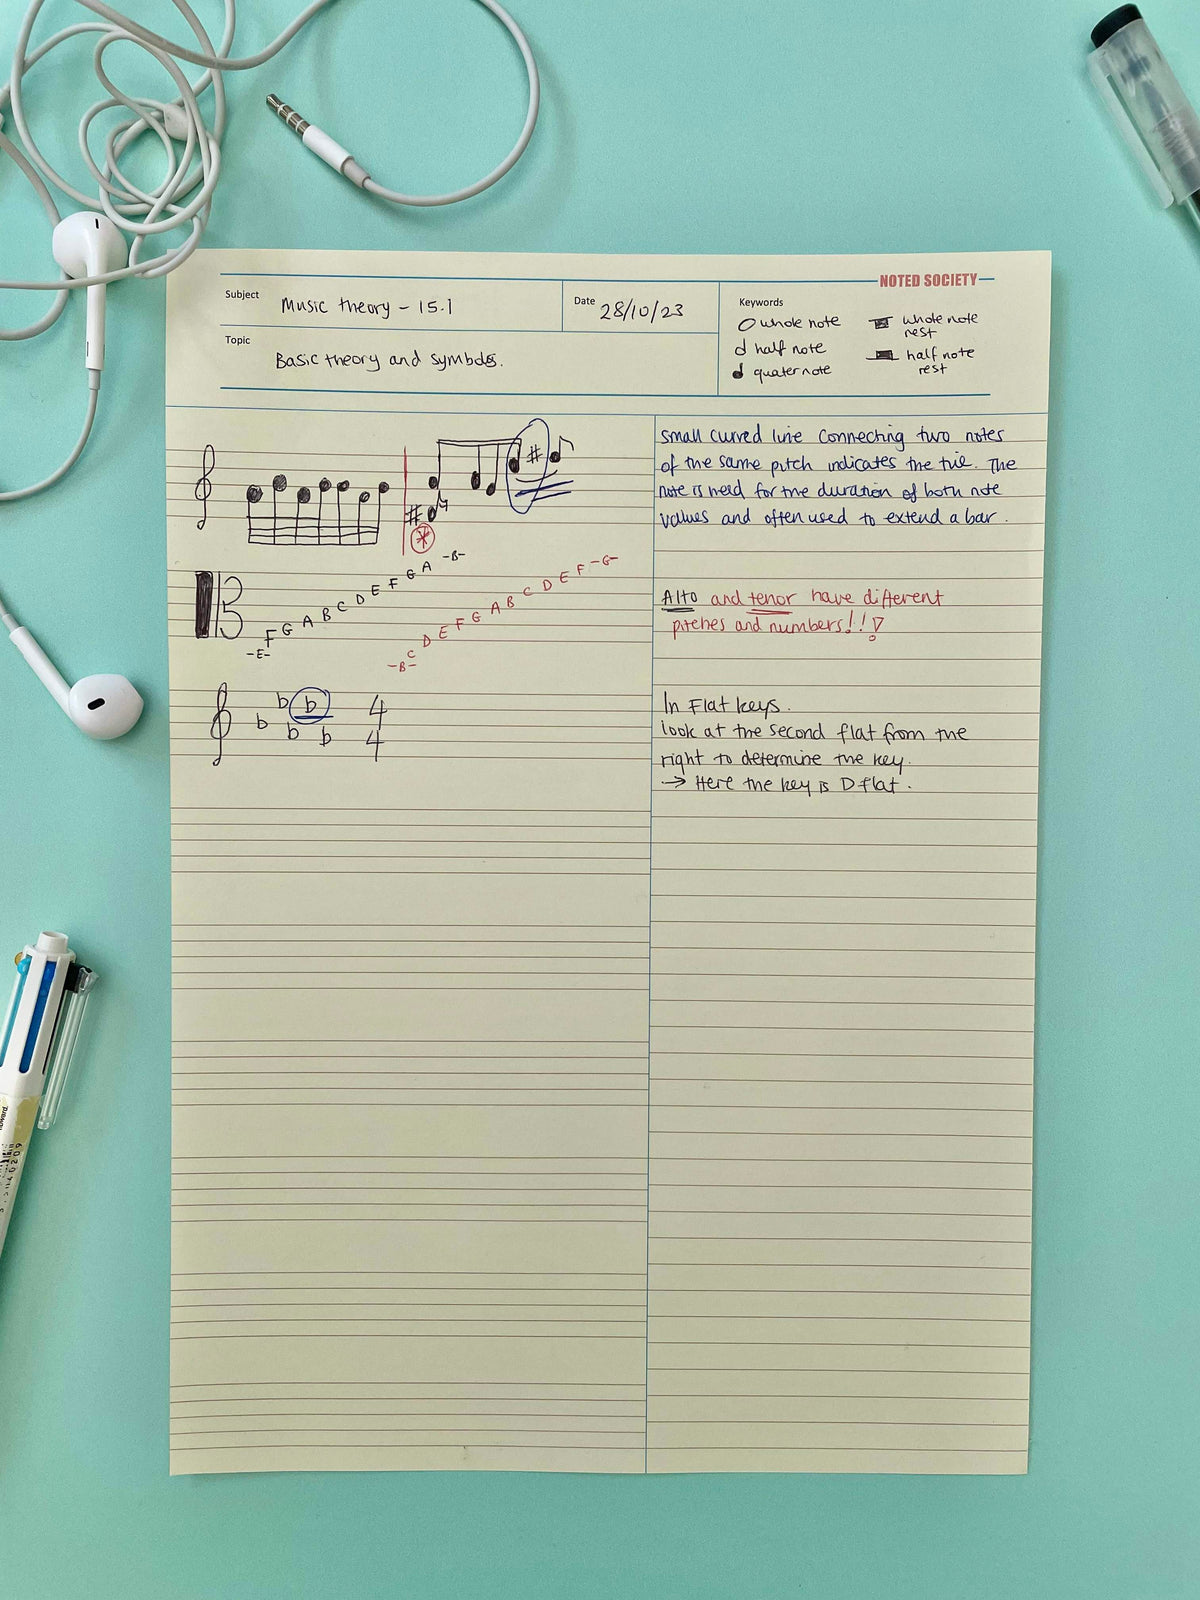 NOTED SOCIETY
Subject Music theory - 15.1
Date 28/10/23
Topic
Basic theory and symbols.
Keywords
whole note
half note
quaternote
whole note
rest
half note
rest
small curved line connecting two notes
of the same pitch indicates the tie. The
note is held for the duration of both note
values and often used to extend a bar.
-E- F G A B C D E F G A -B-
-B- C D E F G A B C D E F -G-
Alto and tenor have different
pitches and numbers!!!
b b b b b 4
4
In Flat keys.
look at the second flat from the
right to determine the key.
→ Here the key is D flat.